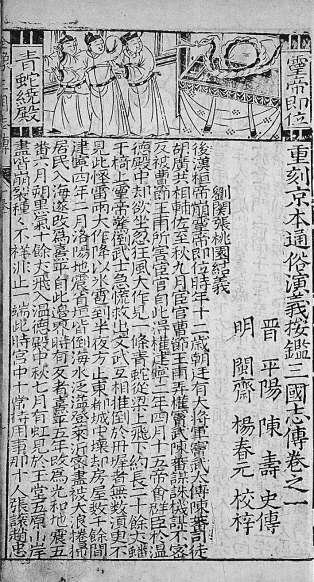 靈帝即位
青蛇繞殿
重刻京本通俗演義按鑑三國志傳卷之一
晉 平陽 陳 壽 史傳
明 閩齋 楊春元 校梓
劉關張桃園結義
後漢桓帝崩靈帝即位時年十二歲朝廷有大將軍竇武大傅陳蕃司徒
胡廣共相輔佐至秋九月宦官曹節王甫弄權竇武陳蕃謀誅機謀不容
反被曹節王甫所害宦官自此得權建寧二年四月十五帝會群臣於溫
德殿中却欲坐忽狂風大作見一條青蛇從梁上飛下約長二十餘丈蟠
于椅上靈帝驚倒武士急慌救出文武互相推倒於丹墀者無數須臾不
見此怪雷雨大作降以冰雹到半夜方止東都城中壞却房屋數千餘間
建寧四年二月洛陽地震省垣皆倒海水泛溢登萊沂密盡被大浪捲掃
居民入海遂改為熹平自此邊界時有反者熹平五年改為光和地震五
番六月朔黑氣十餘丈飛入溫德殿中秋七月有虹見於玉堂五原山岸
盡皆崩裂種々不祥非止一端此時宮中十常侍用事那十人張讓趙忠